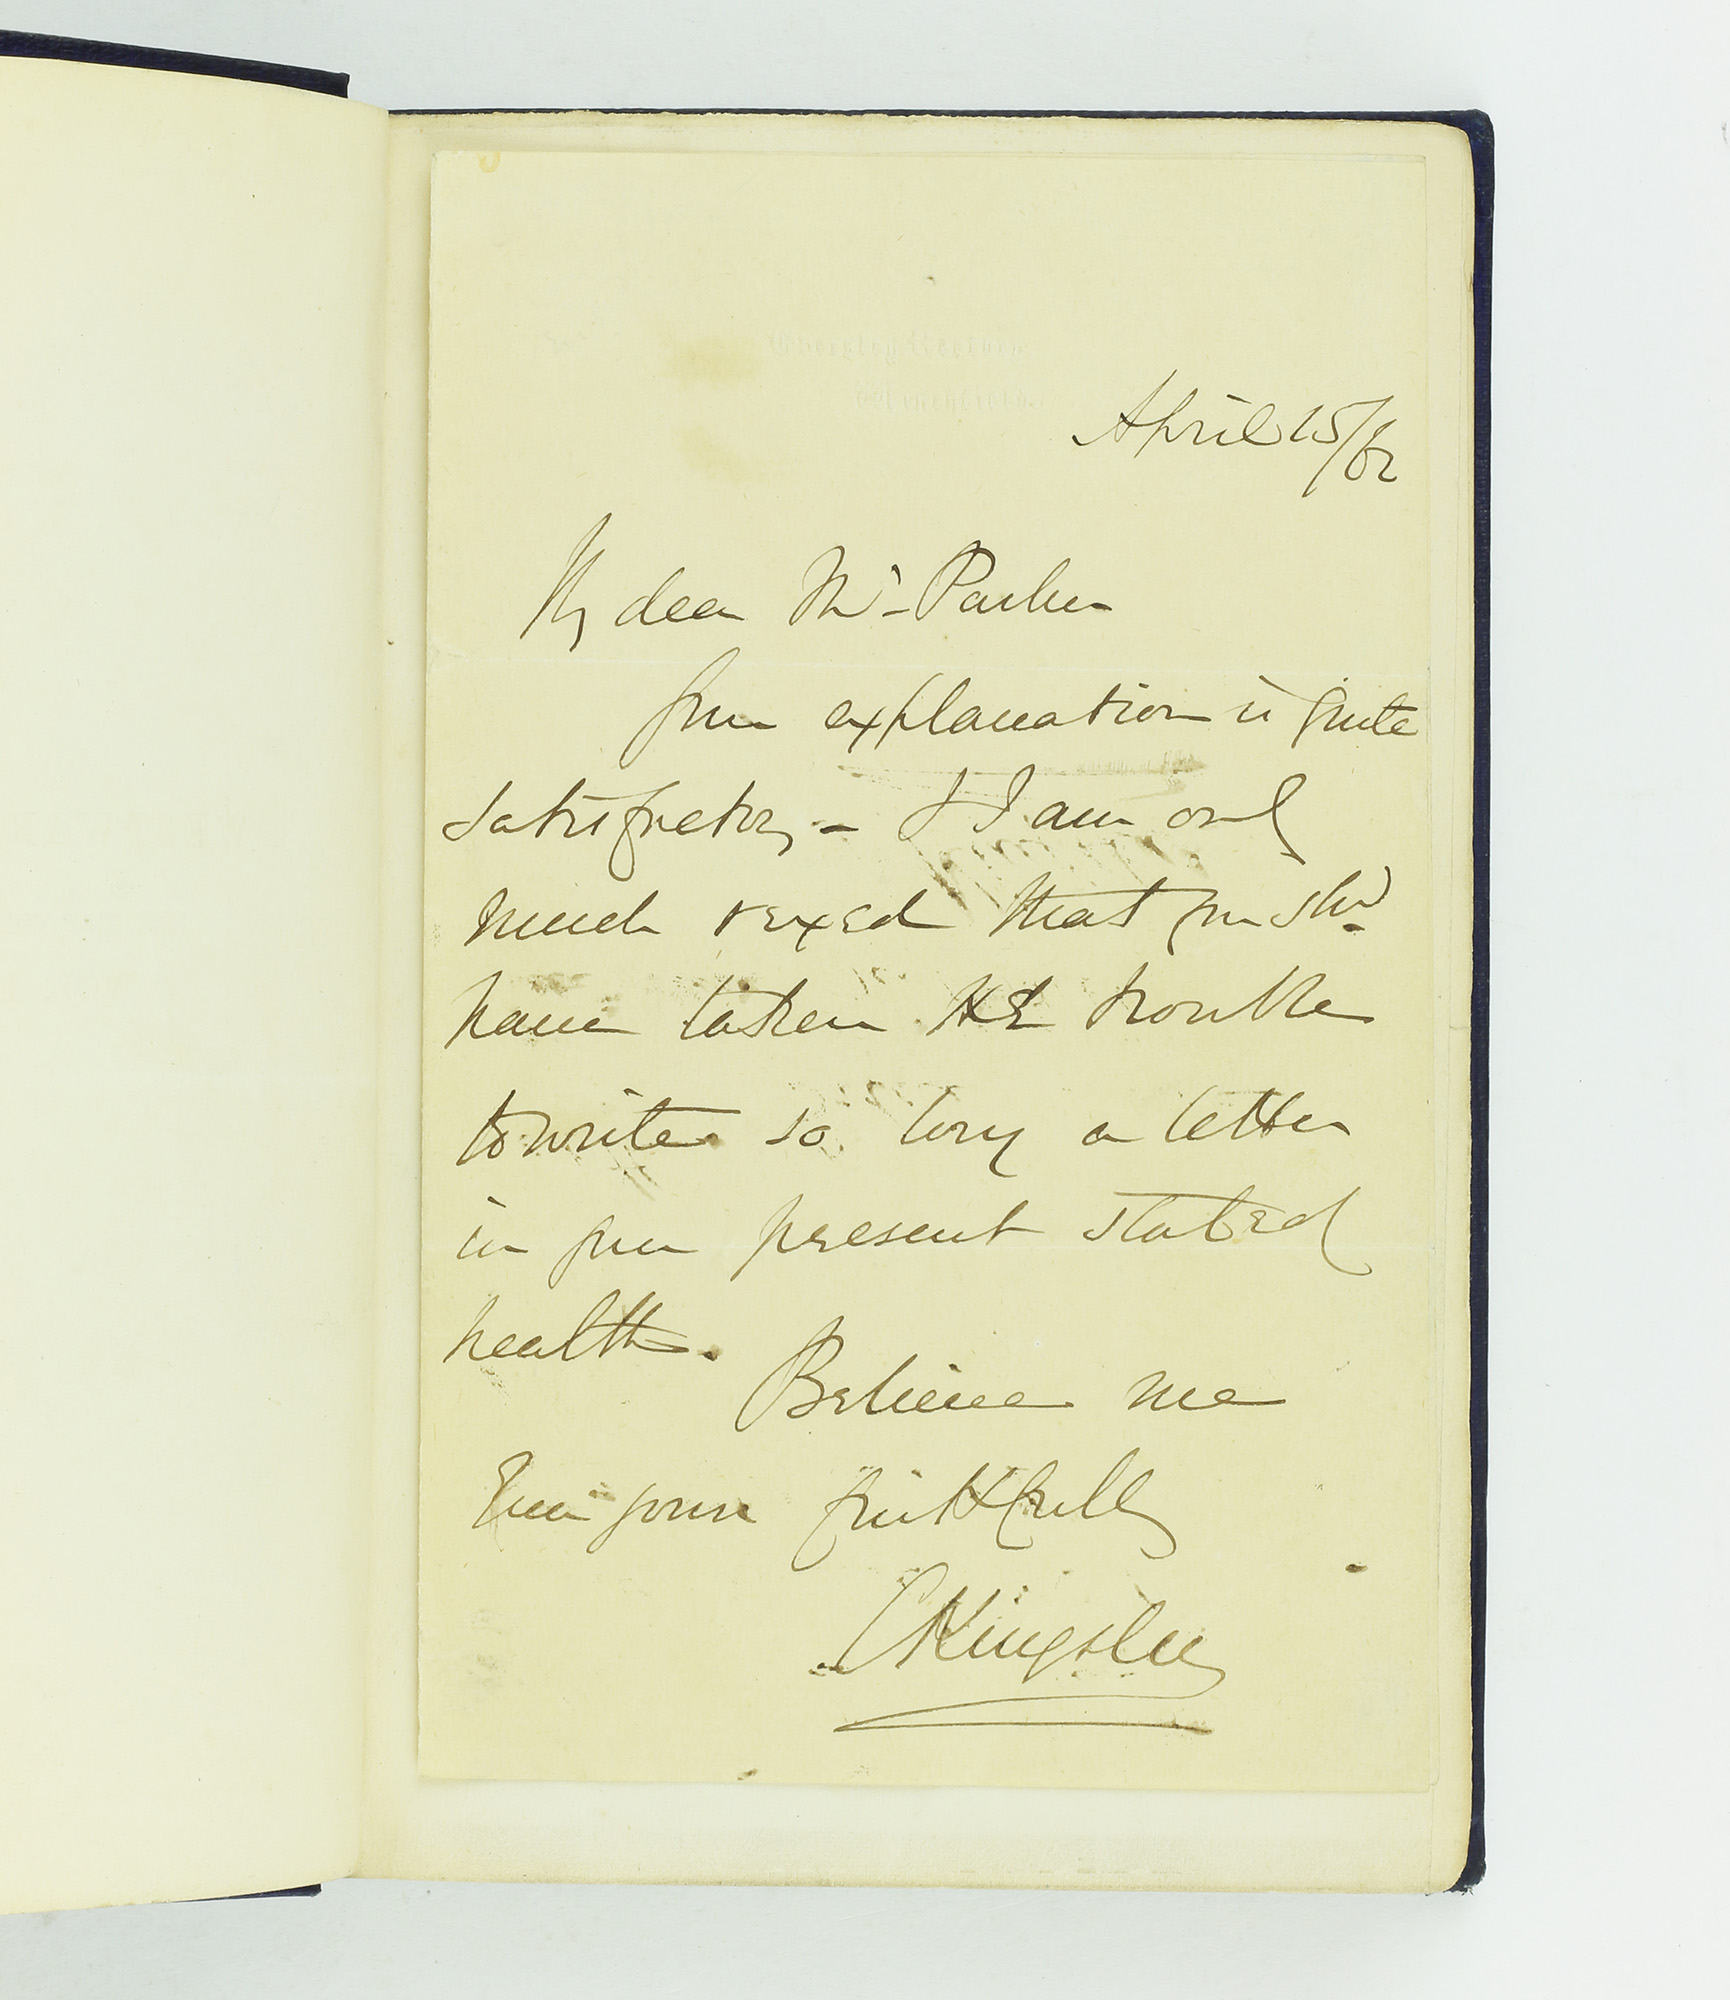 Eversley Rectory
Winchfield
April 15/62
My dear Mr. Parker
Your explanation is quite
satisfactory - & I am only
much vexed that you shd.
have taken the trouble
to write so long a letter
in your present state of
health.
Believe me
Ever yours faithfully
CKingsley